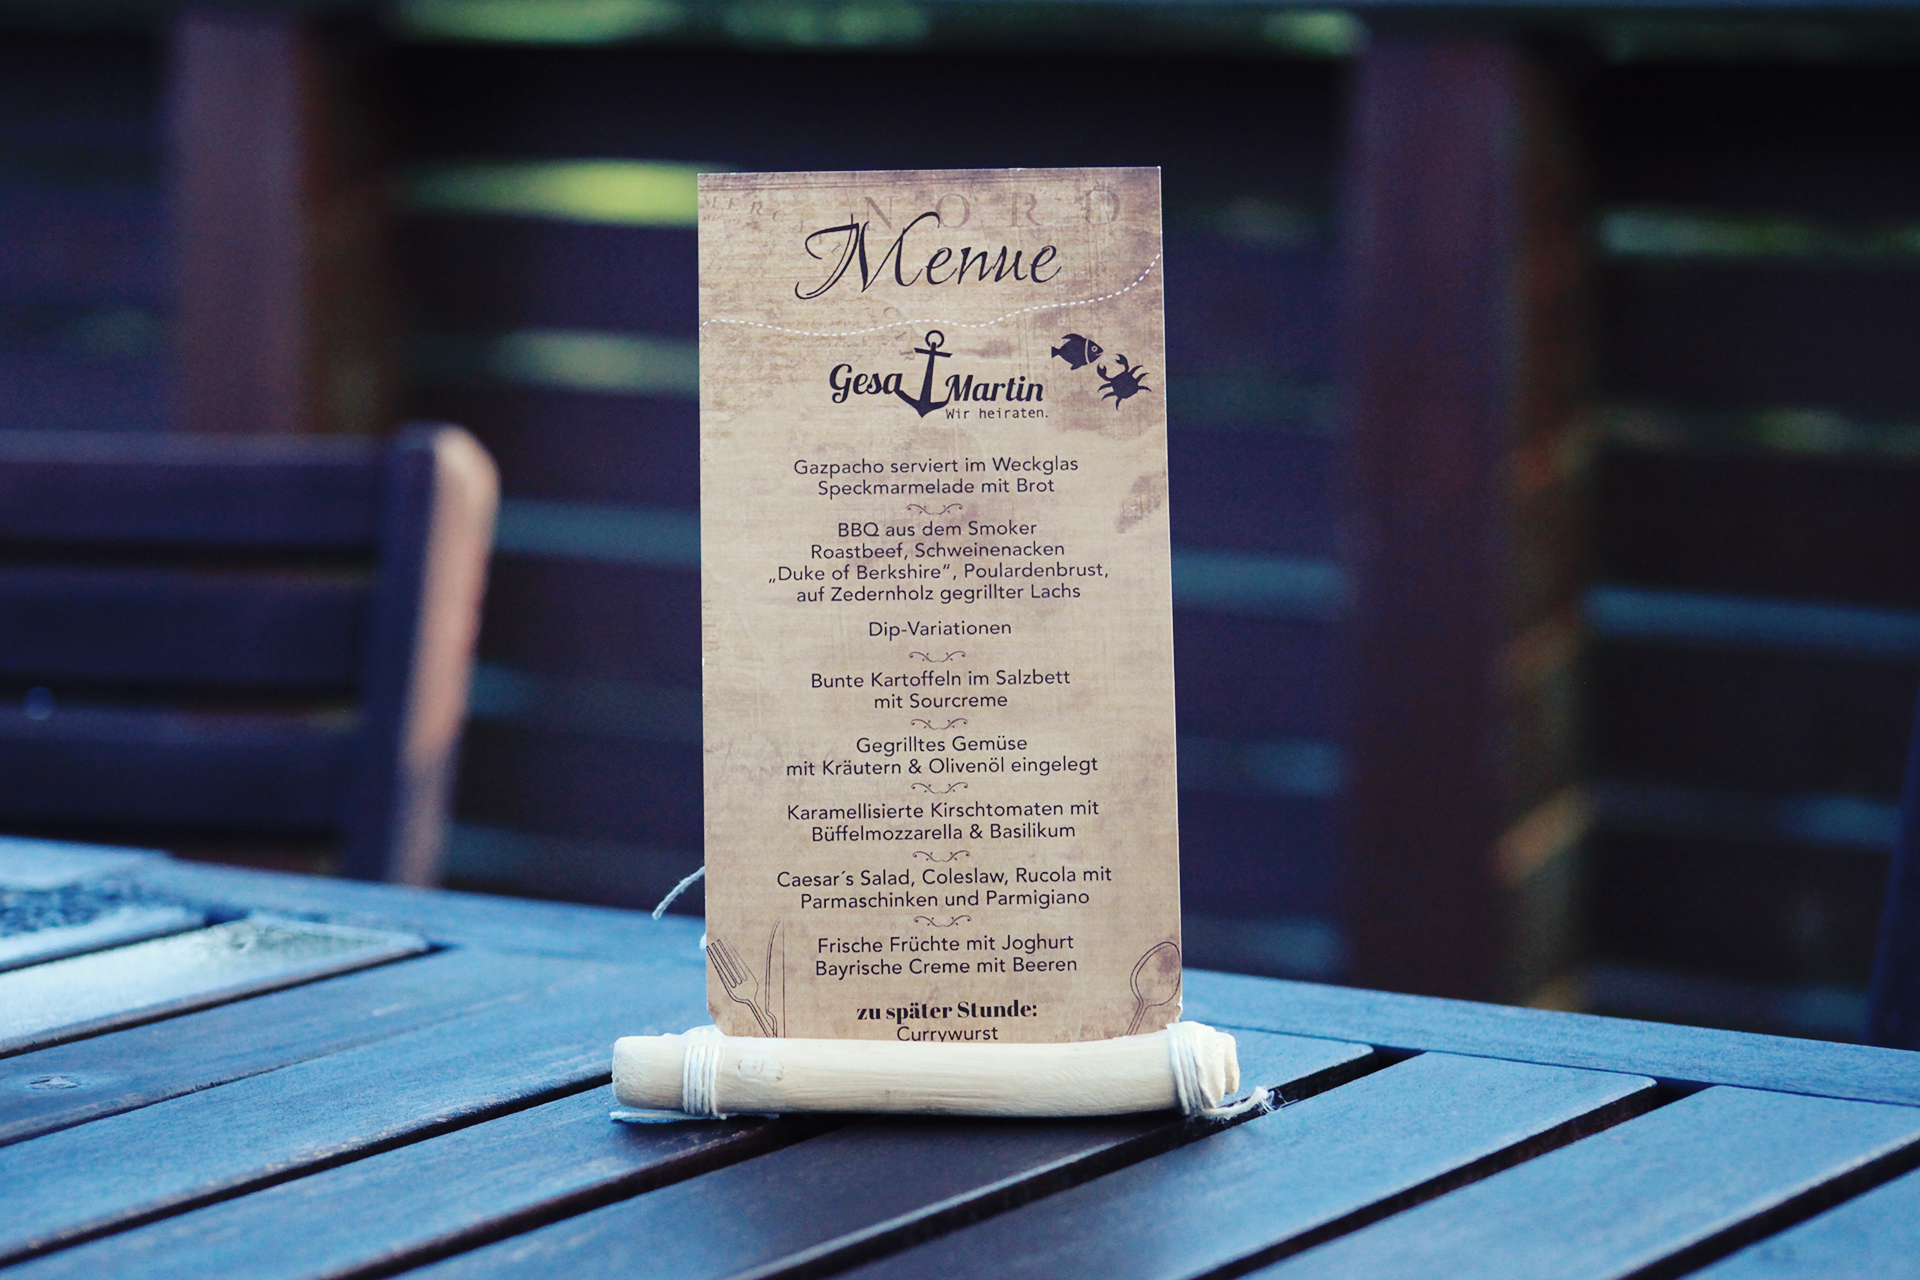 NORD
Menue
Gesa Martin
Wir heiraten.
Gazpacho serviert im Weckglas
Speckmarmelade mit Brot
BBQ aus dem Smoker
Roastbeef, Schweinenacken
„Duke of Berkshire“, Poulardenbrust,
auf Zedernholz gegrillter Lachs
Dip-Variationen
Bunte Kartoffeln im Salzbett
mit Sourcreme
Gegrilltes Gemüse
mit Kräutern & Olivenöl eingelegt
Karamellisierte Kirschtomaten mit
Büffelmozzarella & Basilikum
Caesar´s Salad, Coleslaw, Rucola mit
Parmaschinken und Parmigiano
Frische Früchte mit Joghurt
Bayrische Creme mit Beeren
zu später Stunde:
Currywurst